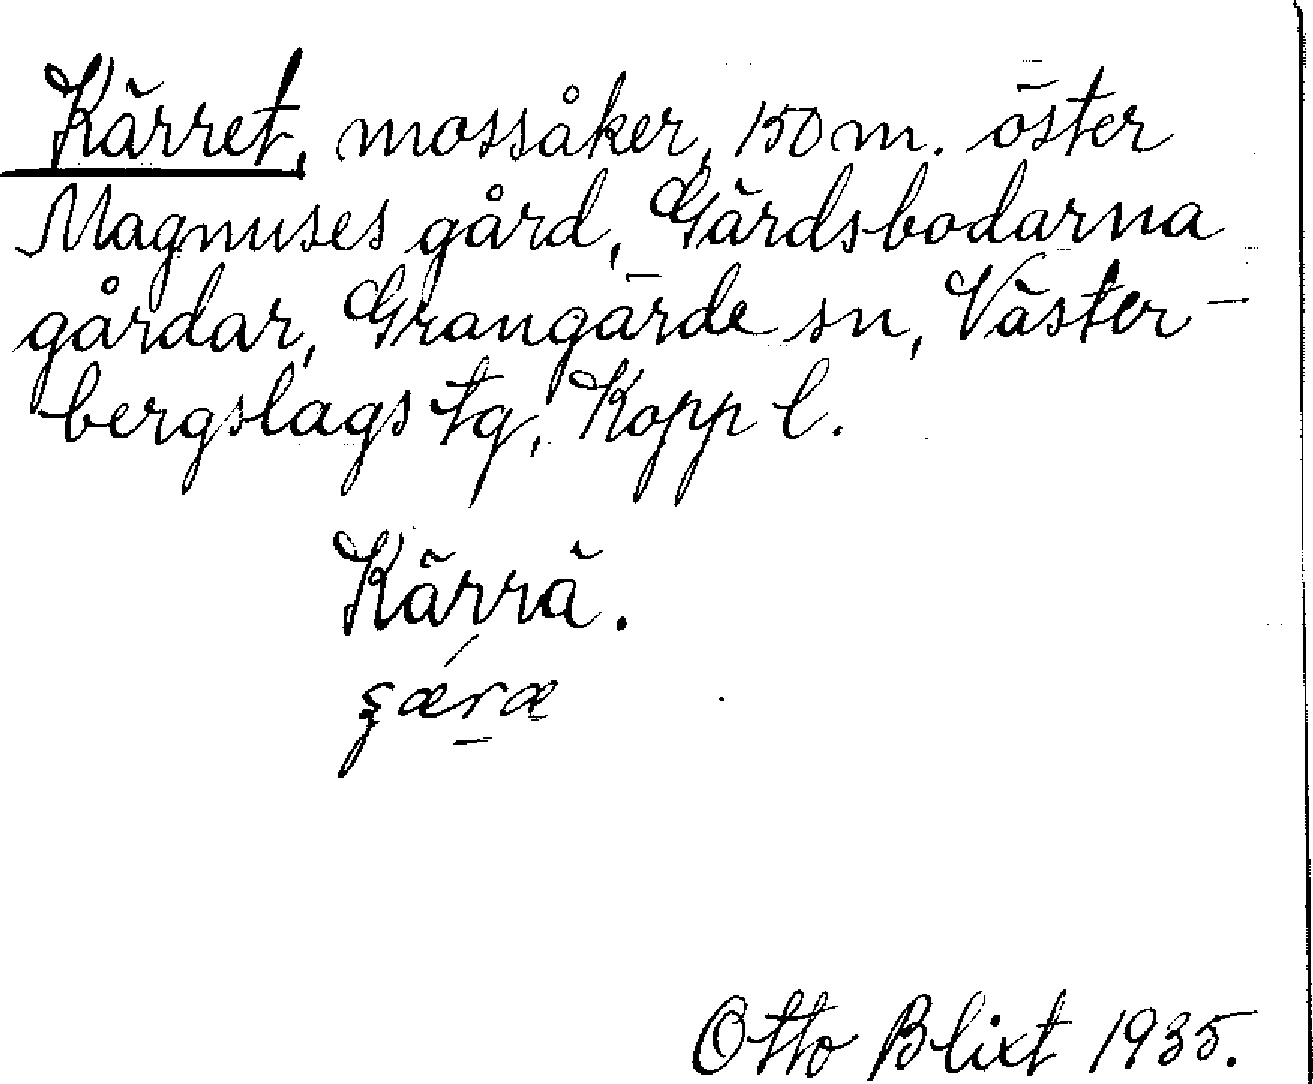 Kärret, mossåker, 150 m. öster
Magnuses gård, Gärdsbodarna
gårdar, Grangärde sn, Väster-
bergslags tg, Kopp l.
Kärrä.
Otto Blixt 1935.